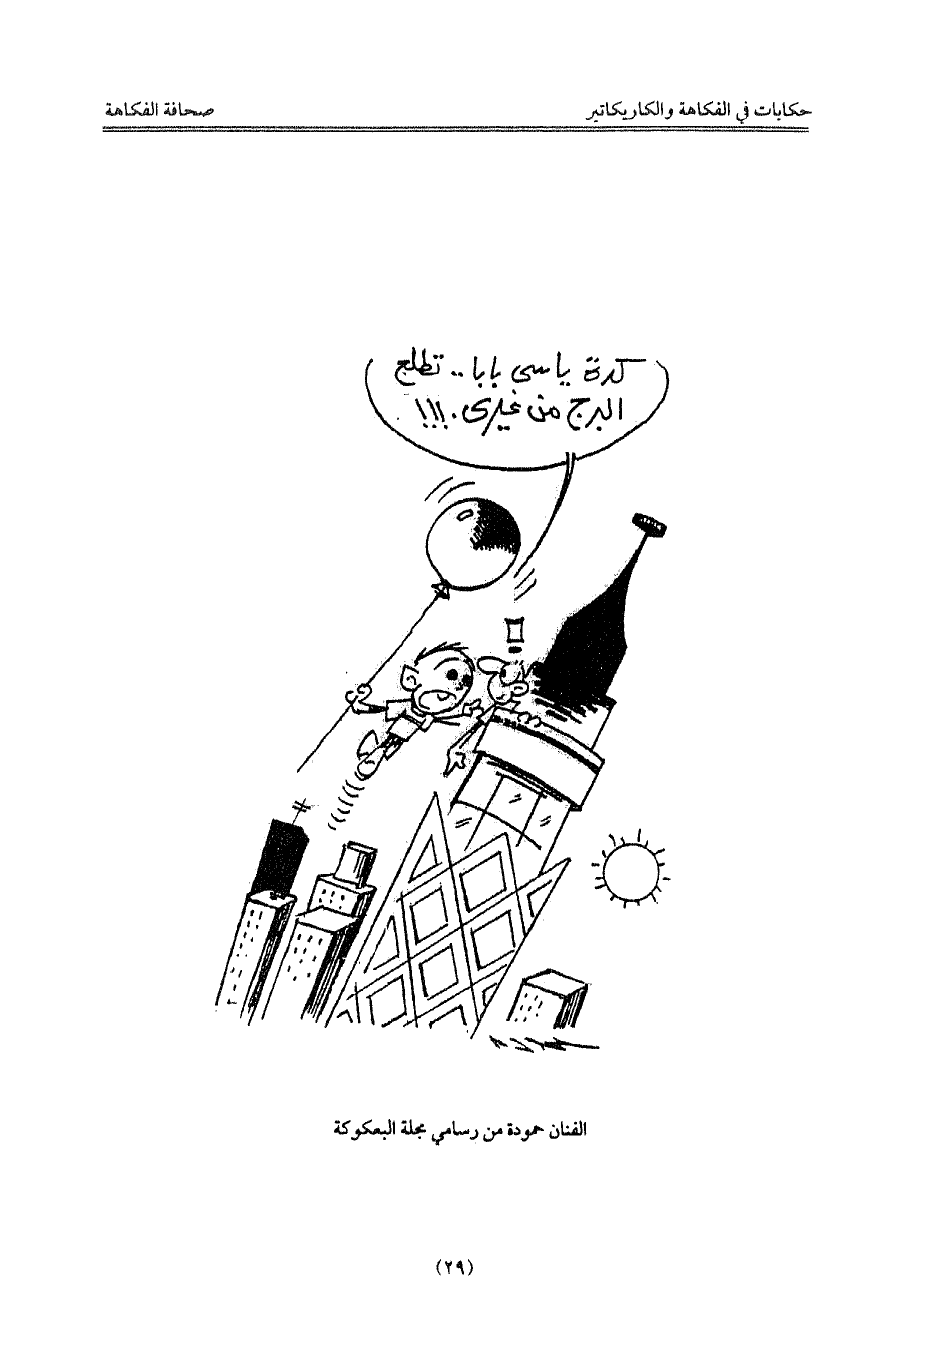 حكايات في الفكاهة والكاريكاتير
صحافة الفكاهة
كدة يا سى بابا .. تطلع
البرج من غيرى . !!!
الفنان حمودة من رسامي مجلة البعكوكة
(٢٩)